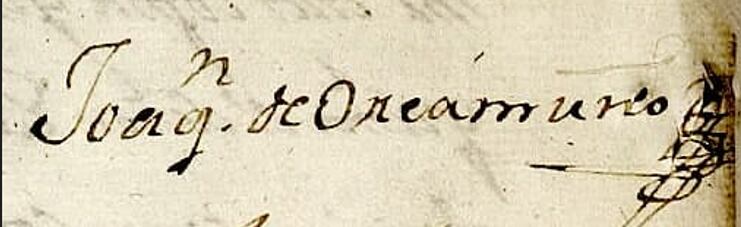 Joaqn. de Oreámuno